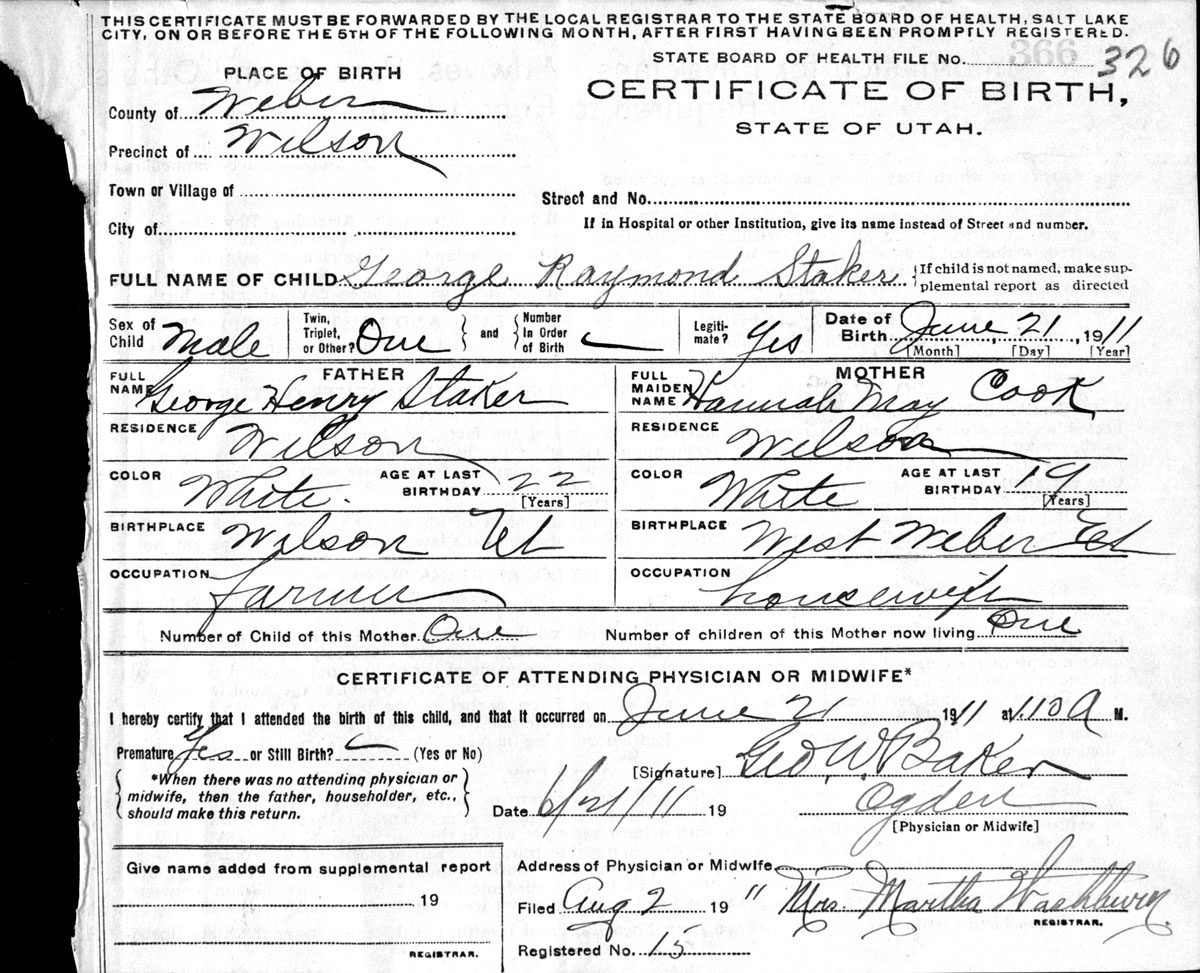 THIS CERTIFICATE MUST BE FORWARDED BY THE LOCAL REGISTRAR TO THE STATE BOARD OF HEALTH, SALT LAKE
CITY, ON OR BEFORE THE 5TH OF THE FOLLOWING MONTH, AFTER FIRST HAVING BEEN PROMPTLY REGISTERED.
STATE BOARD OF HEALTH FILE No. 366 326
PLACE OF BIRTH
CERTIFICATE OF BIRTH,
County of Weber
STATE OF UTAH.
Precinct of Wilson
Town or Village of
Street and No.
City of
If in Hospital or other Institution, give its name instead of Street and number.
FULL NAME OF CHILD George Raymond Staker {If child is not named, make sup-
plemental report as directed
Sex of Child Male Twin, Triplet, or Other? One } and { Number in Order of Birth Legiti-mate? Yes Date of Birth June 21, 1911
[Month] [Day] [Year]
FATHER MOTHER
FULL NAME George Henry Staker FULL MAIDEN NAME Hannah May Cook
RESIDENCE Wilson RESIDENCE Wilson
COLOR White. AGE AT LAST BIRTHDAY 22 [Years] COLOR White AGE AT LAST BIRTHDAY 19 [Years]
BIRTHPLACE Wilson Ut BIRTHPLACE West Weber Ut
OCCUPATION farmer OCCUPATION housewife
Number of Child of this Mother One Number of children of this Mother now living One
CERTIFICATE OF ATTENDING PHYSICIAN OR MIDWIFE*
I hereby certify that I attended the birth of this child, and that it occurred on June 21 1911 at 1.10 A M.
Premature Yes or Still Birth? (Yes or No)
[Signature] Geo. W. Baker
*When there was no attending physician or
midwife, then the father, householder, etc.,
should make this return.
Date 6/21/11 19 Ogden
[Physician or Midwife]
Give name added from supplemental report
Address of Physician or Midwife
19
Filed Aug 2 19 11 Mrs. Martha Washburn
REGISTRAR.
REGISTRAR.
Registered No. 15